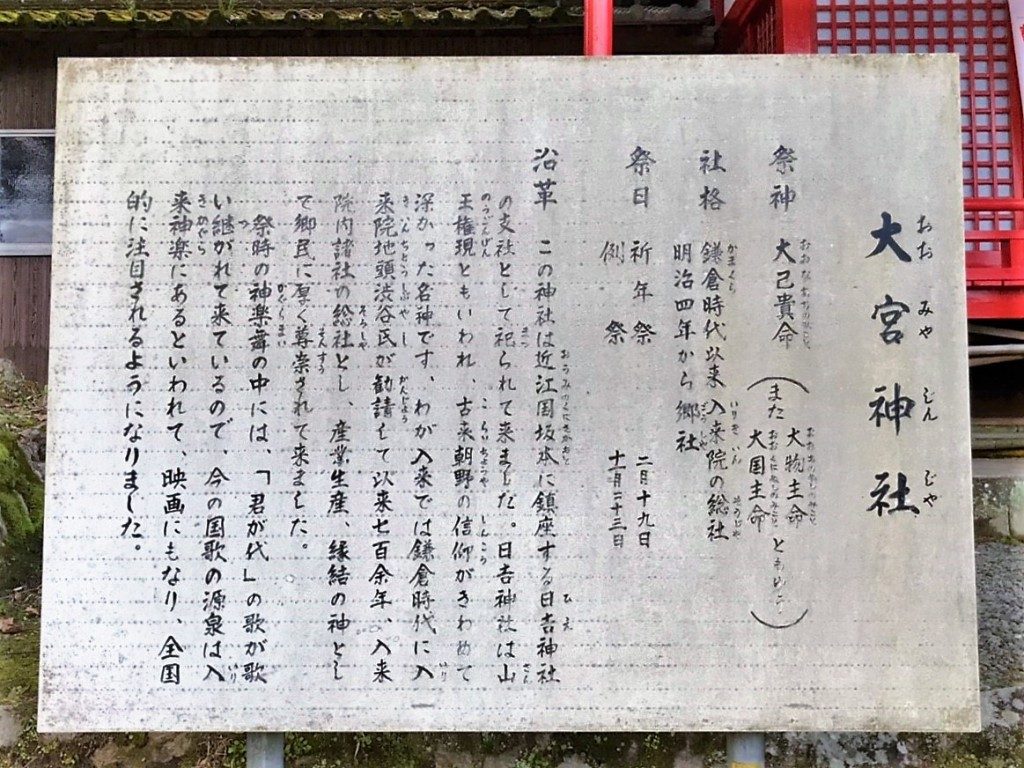 大宮神社
おおみやじんじゃ
祭神 大己貴命
(また 大物主命
大国主命 ともいう)
社格 鎌倉時代以来 入来院の総社
明治四年から 郷社
祭日 祈年祭 二月十九日
例祭 十一月二十三日
沿革 この神社は近江国坂本に鎮座する日吉神社
の支社として祀られて来ました。日吉神社は山
王権現ともいわれ、古来朝野の信仰がきわめて
深かった名神です、わが入来では鎌倉時代に入
来院地頭渋谷氏が勧請して以来七百余年、入来
院内諸社の総社とし、産業生産、縁結の神とし
て郷民に厚く尊崇されて来ました。
祭時の神楽舞の中には、「君が代」の歌が歌
い継がれて来ているので、今の国歌の源泉は入
来神楽にあるといわれて、映画にもなり、全国
的に注目されるようになりました。